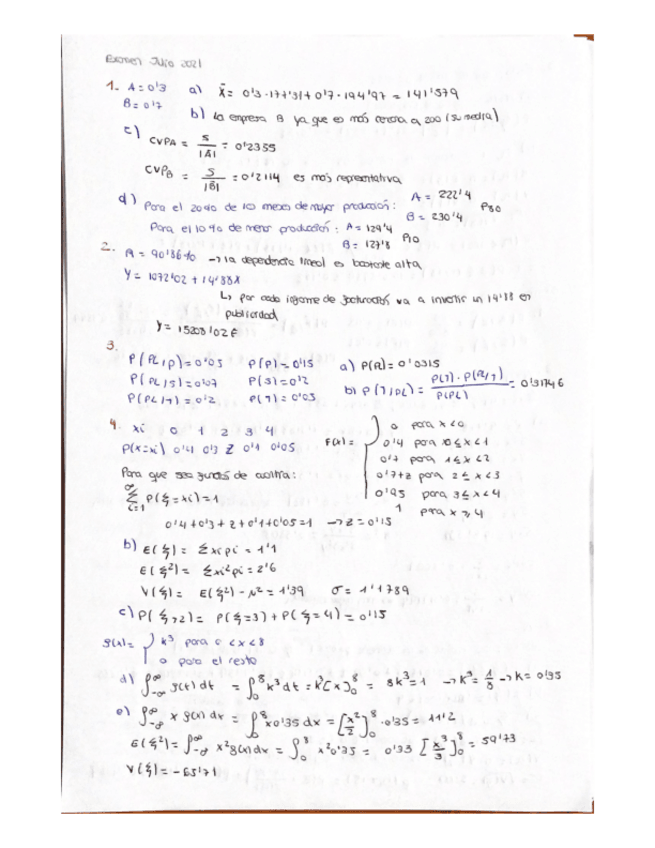 Examen Julio 2021
1. A = 0'3 a) x̄ = 0'3 · 177'31 + 0'7 · 194'97 = 141'579
B = 0'7 b) La empresa B ya que es más cercana a 200 (su media)
c) CVPA = S/|Ā| = 0'2335
CVPB = S/|B̄| = 0'2114 es más representativa
d) Para el 20% de los meses de mayor producción: A = 222'4 B = 230'4 P80
Para el 10% de menor producción: A = 129'4 B = 127'8 P10
2. R = 90'86% → la dependencia lineal es bastante alta
Y = 1072'02 + 14'88X
↳ por cada informe de facturación va a invertir un 14'88 en
publicidad
Y = 15203'02 €
3.
P(PL/P) = 0'05 P(P) = 0'15 a) P(PL) = 0'0315
P(PL/S) = 0'07 P(S) = 0'2
P(PL/T) = 0'2 P(T) = 0'05 b) P(T/PL) = P(T) · P(PL/T) / P(PL) = 0'31746
4. xi 0 1 2 3 4
P(X=xi) 0'4 0'3 Z 0'1 0'05
F(x) = { 0 para x < 0
0'4 para 0 ≤ x < 1
0'7 para 1 ≤ x < 2
0'7+z para 2 ≤ x < 3
0'95 para 3 ≤ x < 4
1 para x ≥ 4
Para que sea función de cuantía:
∞ Σ i=1 P(ξ = xi) = 1
0'4 + 0'3 + z + 0'1 + 0'05 = 1 → z = 0'15
b) E(ξ) = Σxi pi = 1'1
E(ξ²) = Σxi² pi = 2'6
V(ξ) = E(ξ²) - μ² = 1'39 σ = 1'1789
c) P(ξ > 2) = P(ξ = 3) + P(ξ = 4) = 0'15
g(x) = { k³ para 0 < x < 8
0 para el resto
d) ∫-∞^∞ g(t) dt = ∫0^8 k³ dt = k³[x]0^8 = 8k³ = 1 → k³ = 1/8 → k = 0'35
e) ∫-∞^∞ x g(x) dx = ∫0^8 x 0'35 dx = [x²/2]0^8 · 0'35 = 11'2
E(ξ²) = ∫-∞^∞ x² g(x) dx = ∫0^8 x² 0'35 = 0'35 [x³/3]0^8 = 59'73
V(ξ) = -65'71